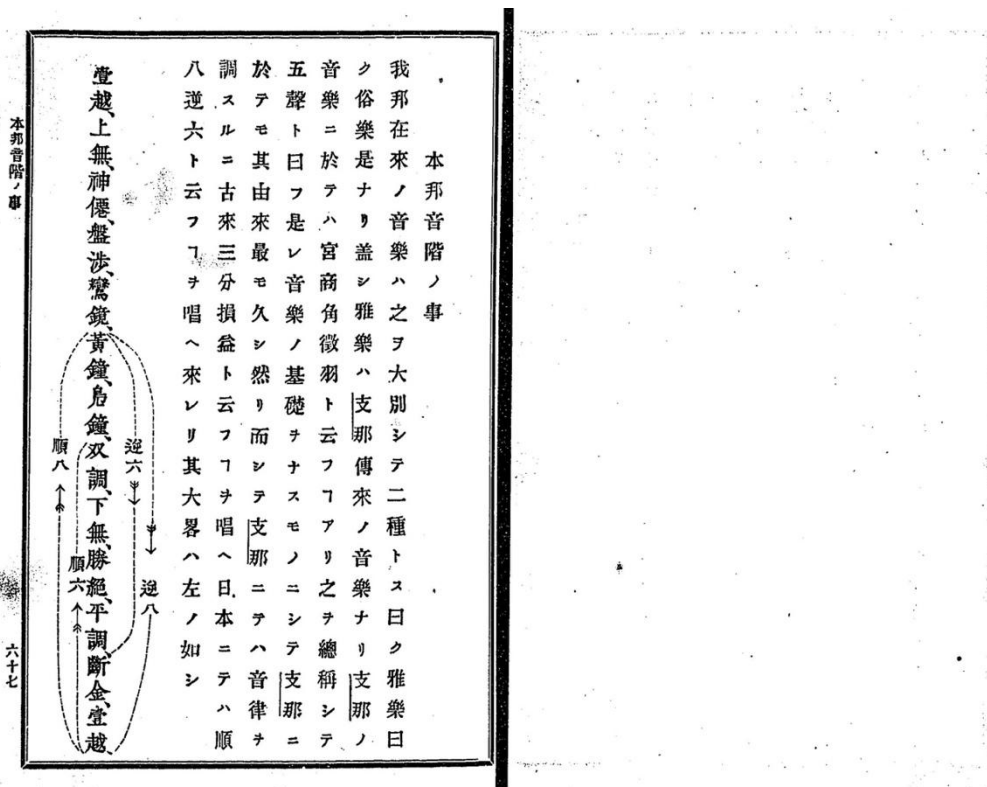 本邦音階ノ事
我邦在來ノ音樂ハ之ヲ大別シテ二種トス曰ク雅樂曰
ク俗樂是ナリ盖シ雅樂ハ支那傳來ノ音樂ナリ支那ノ
音樂ニ於テハ宮商角徵羽ト云フヿアリ之ヲ總稱シテ
五聲ト曰フ是レ音樂ノ基礎ヲナスモノニシテ支那ニ
於テモ其由來最モ久シ然リ而シテ支那ニテハ音律ヲ
調スルニ古來三分損益ト云フヿヲ唱ヘ日本ニテハ順
八逆六ト云フヿヲ唱ヘ來レリ其大畧ハ左ノ如シ
逆八
逆六
壹越、上無、神僊、盤涉、鸞鏡、黃鐘、鳧鐘、双調、下無、勝絕、平調、斷金、壹越、
順六
順八
本邦音階ノ事
六十七